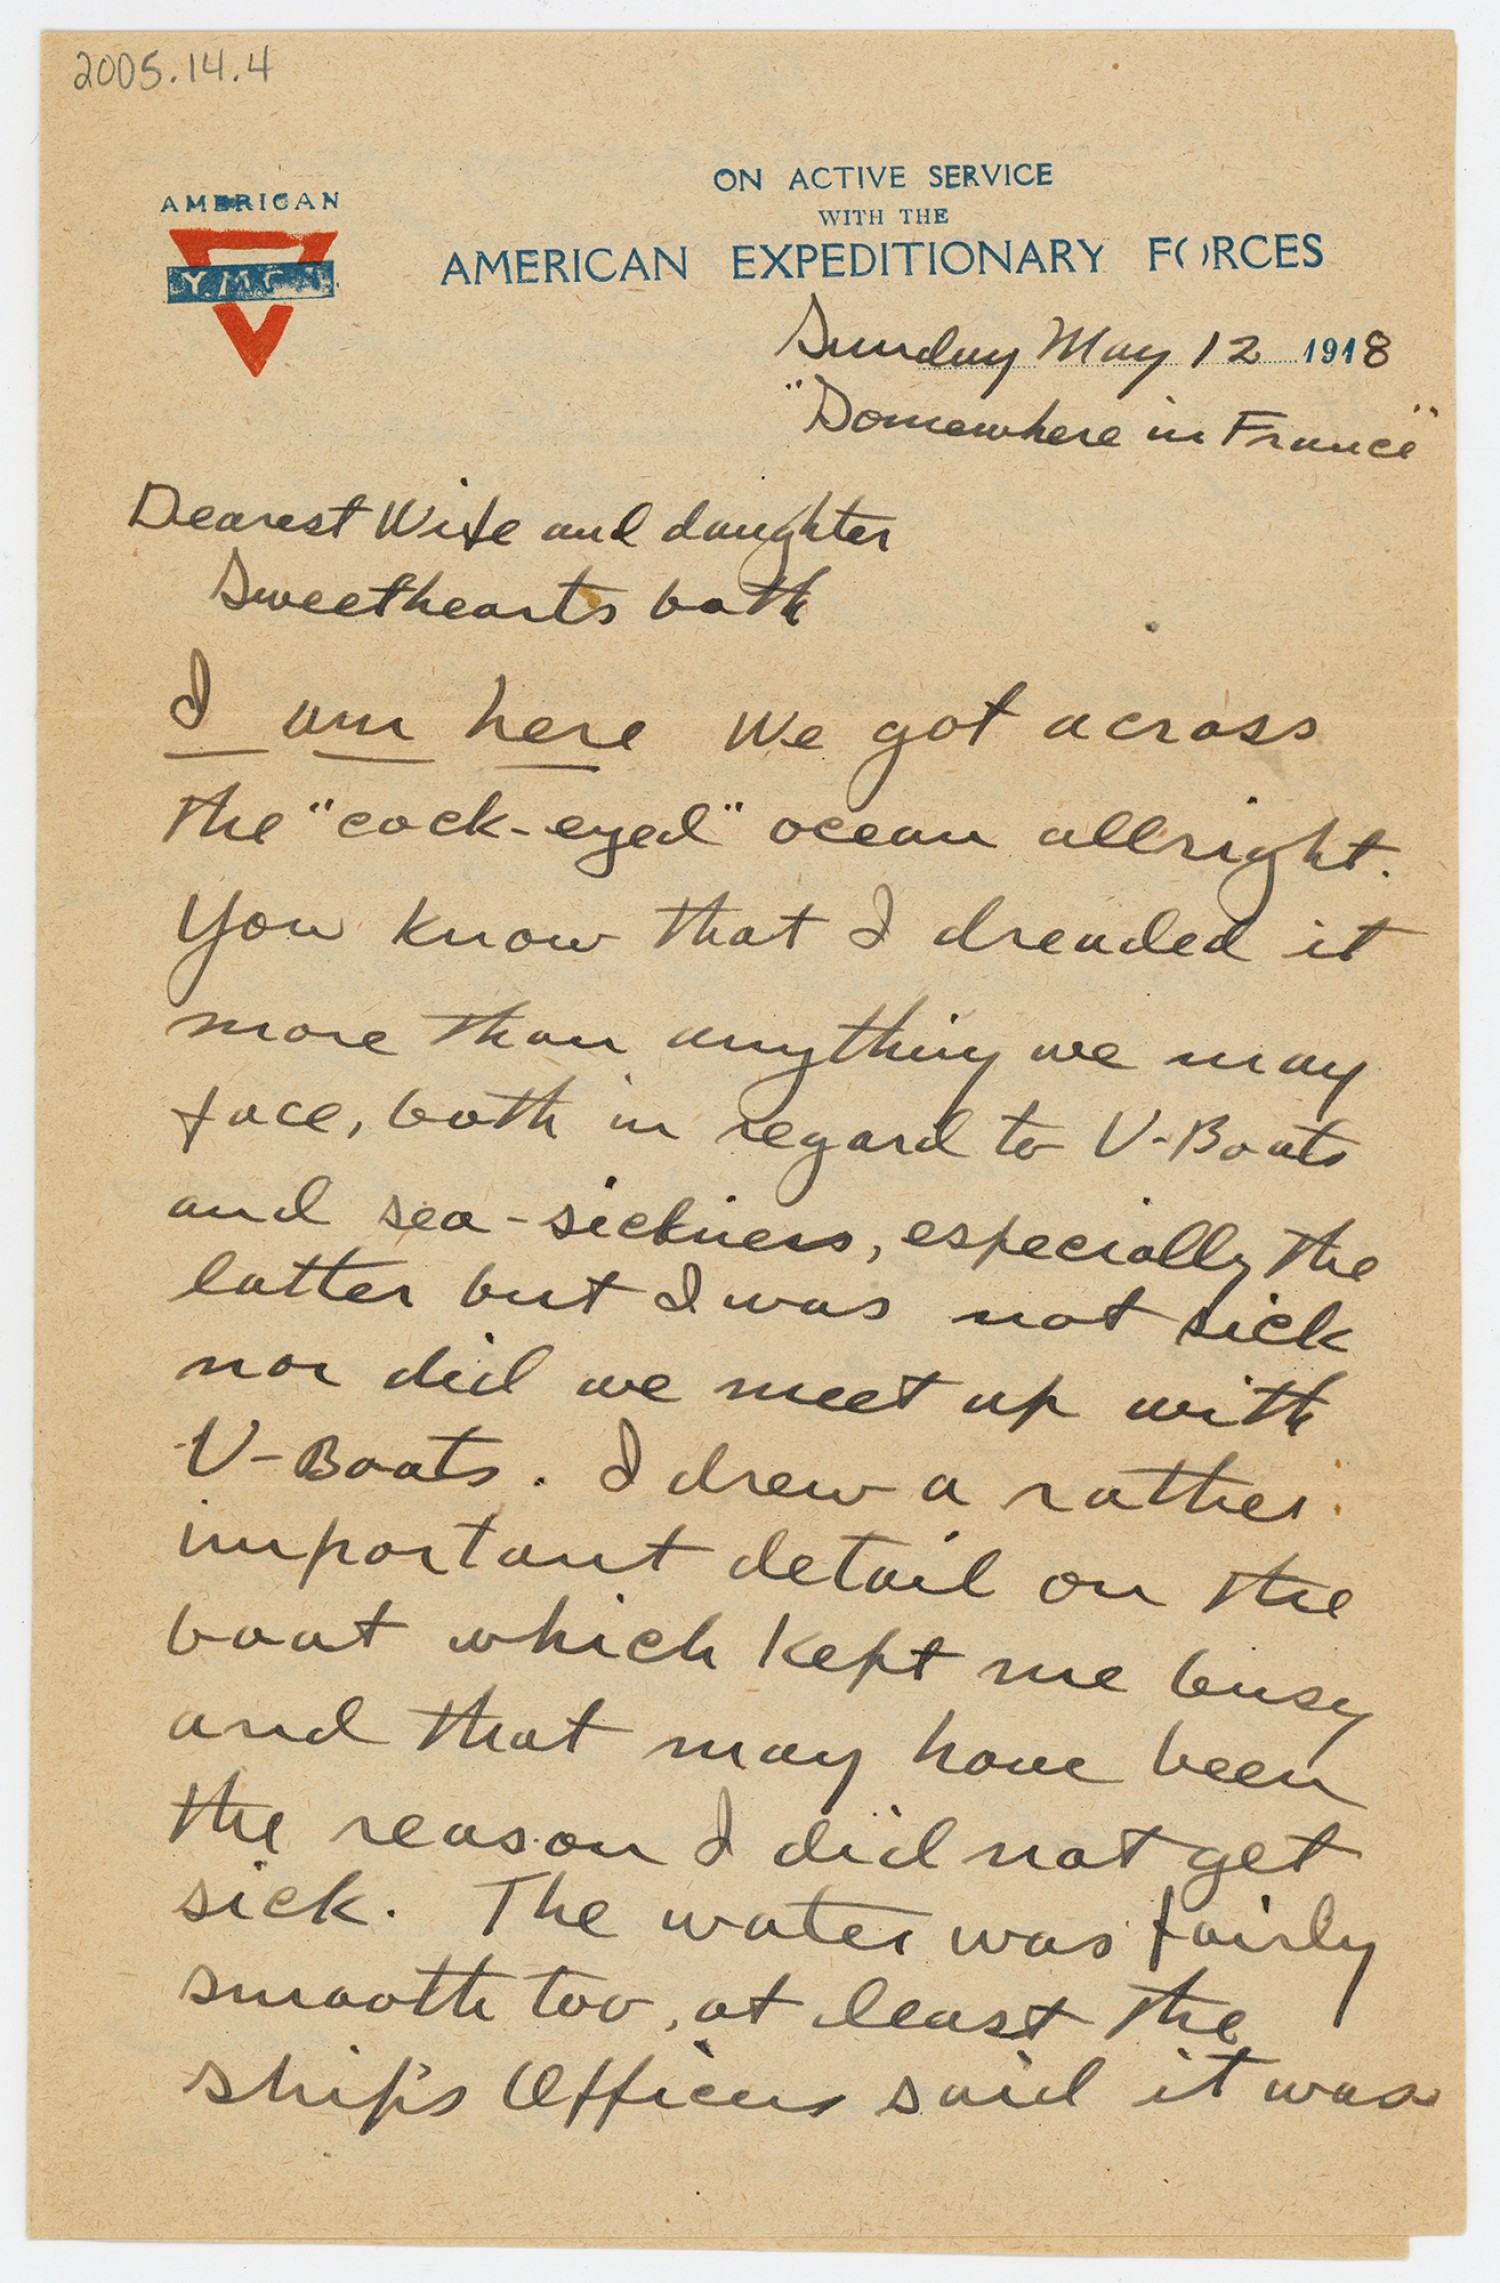 2005.14.4
AMERICAN
Y.M.C.A.
ON ACTIVE SERVICE
WITH THE
AMERICAN EXPEDITIONARY FORCES
Sunday May 12 1918
"Somewhere in France"
Dearest Wife and daughter
Sweethearts both
I am here We got across
the "cock-eyed" ocean allright.
You know that I dreaded it
more than anything we may
face, both in regard to U-Boats
and sea-sickness, especially the
latter but I was not sick
nor did we meet up with
U-Boats. I drew a rather
important detail on the
boat which kept me busy
and that may have been
the reason I did not get
sick. The water was fairly
smooth too, at least the
ship's Officers said it was